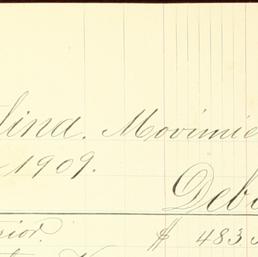 lina. Movimie
1909.
Deb
rior. $ 483